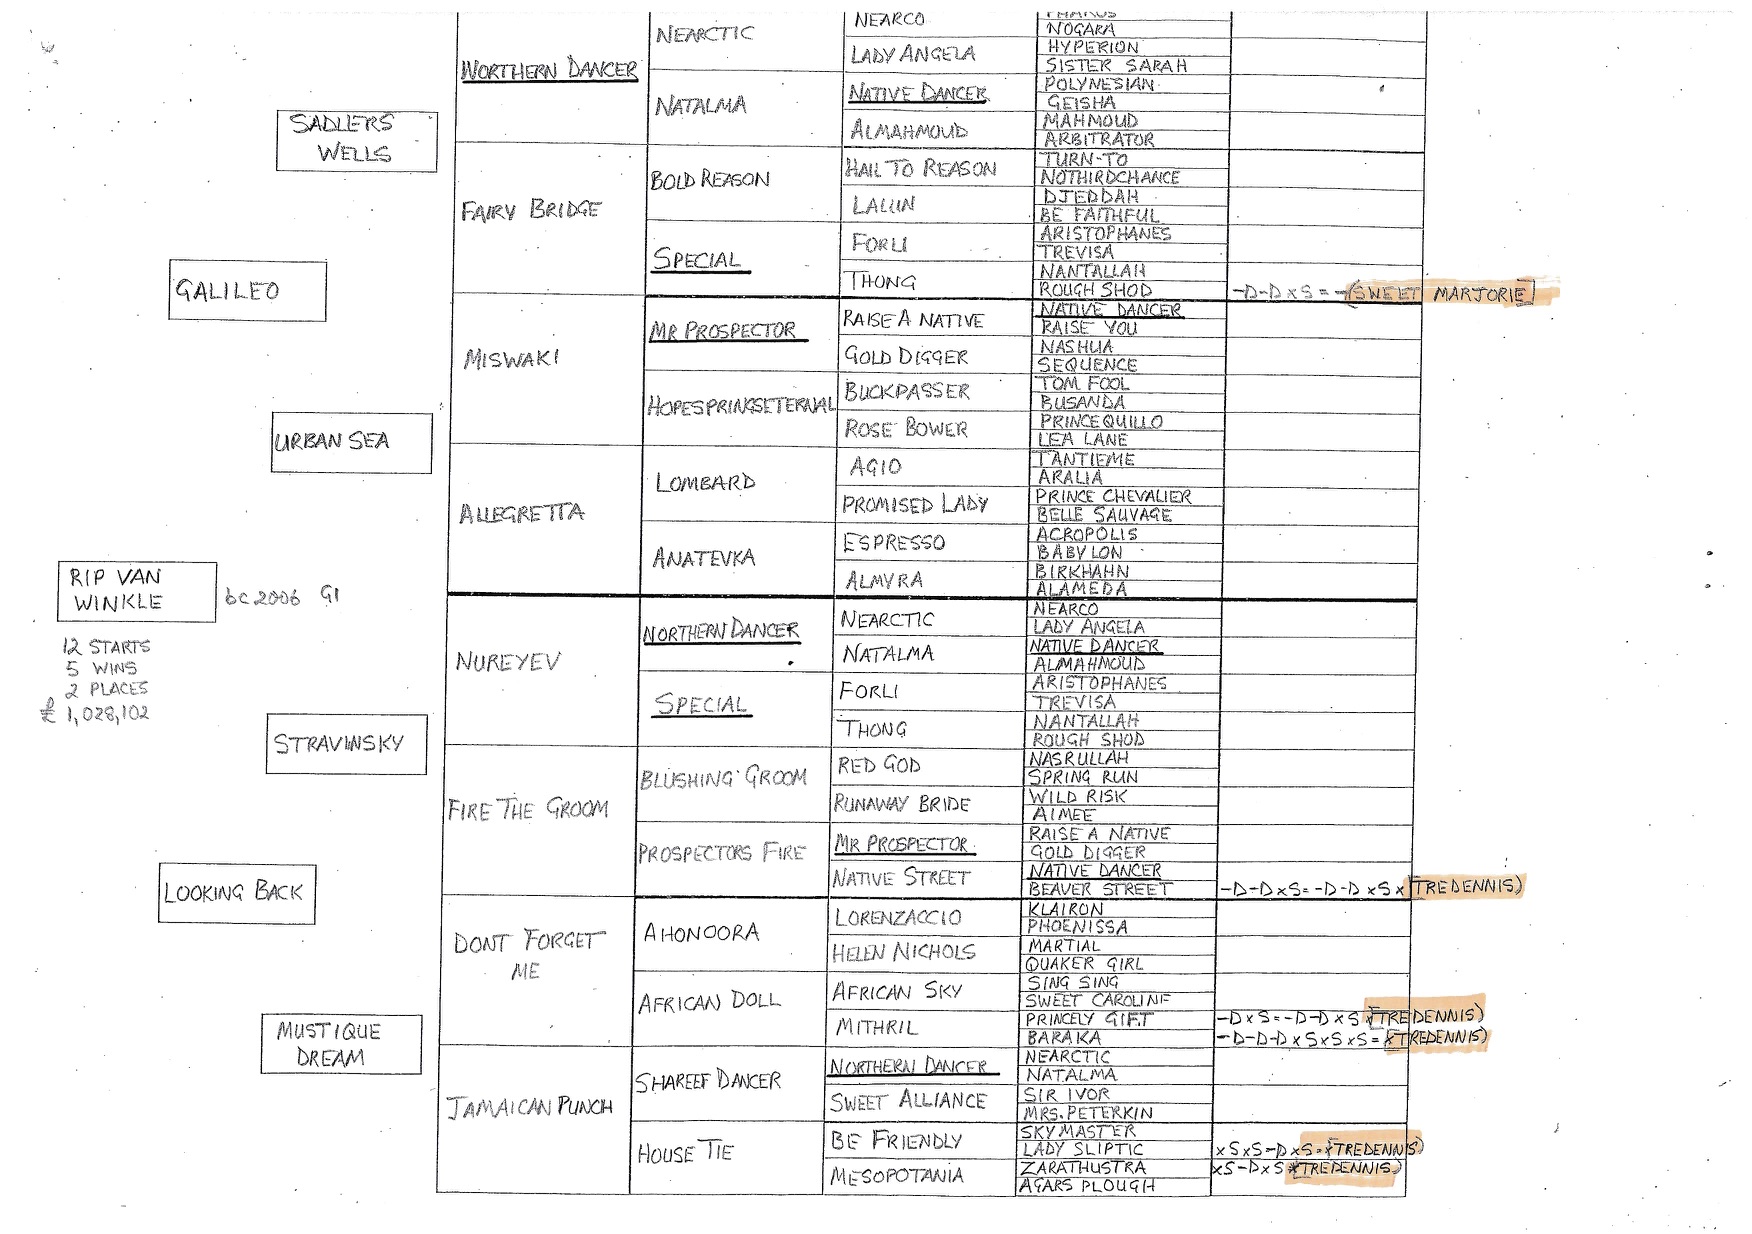 SADLERS
WELLS
GALILEO
URBAN SEA
RIP VAN
WINKLE
bc 2006 G1
12 STARTS
5 WINS
2 PLACES
£ 1,028,102
STRAVINSKY
LOOKING BACK
MUSTIQUE
DREAM
NORTHERN DANCER
FAIRY BRIDGE
MISWAKI
ALLEGRETTA
NUREYEV
FIRE THE GROOM
DONT FORGET
ME
JAMAICAN PUNCH
NEARCTIC
NATALMA
BOLD REASON
SPECIAL
MR PROSPECTOR
HOPESPRINGSETERNAL
LOMBARD
ANATEVKA
NORTHERN DANCER
SPECIAL
BLUSHING GROOM
PROSPECTORS FIRE
AHONOORA
AFRICAN DOLL
SHAREEF DANCER
HOUSE TIE
NEARCO
LADY ANGELA
NATIVE DANCER
ALMAHMOUD
HAIL TO REASON
LALUN
FORLI
THONG
RAISE A NATIVE
GOLD DIGGER
BUCKPASSER
ROSE BOWER
AGIO
PROMISED LADY
ESPRESSO
ALMYRA
NEARCTIC
NATALMA
FORLI
THONG
RED GOD
RUNAWAY BRIDE
MR PROSPECTOR
NATIVE STREET
LORENZACCIO
HELEN NICHOLS
AFRICAN SKY
MITHRIL
NORTHERN DANCER
SWEET ALLIANCE
BE FRIENDLY
MESOPOTANIA
PHARUS
NOGARA
HYPERION
SISTER SARAH
POLYNESIAN
GEISHA
MAHMOUD
ARBITRATOR
TURN-TO
NOTHIRDCHANCE
DJEDDAH
BE FAITHFUL
ARISTOPHANES
TREVISA
NANTALLAH
ROUGH SHOD -D-D x S = -(SWEET MARJORIE)
NATIVE DANCER
RAISE YOU
NASHUA
SEQUENCE
TOM FOOL
BUSANDA
PRINCEQUILLO
LEA LANE
TANTIEME
ARALIA
PRINCE CHEVALIER
BELLE SAUVAGE
ACROPOLIS
BABYLON
BIRKHAHN
ALAMEDA
NEARCO
LADY ANGELA
NATIVE DANCER
ALMAHMOUD
ARISTOPHANES
TREVISA
NANTALLAH
ROUGH SHOD
NASRULLAH
SPRING RUN
WILD RISK
AIMEE
RAISE A NATIVE
GOLD DIGGER
NATIVE DANCER
BEAVER STREET -D-D x S = -D-D x S x (TREDENNIS)
KLAIRON
PHOENISSA
MARTIAL
QUAKER GIRL
SING SING
SWEET CAROLINE
PRINCELY GIFT -D x S = -D-D x S x (TREDENNIS)
BARAKA -D-D-D x S x S x S = x (TREDENNIS)
NEARCTIC
NATALMA
SIR IVOR
MRS. PETERKIN
SKY MASTER
LADY SLIPTIC x S x S - D x S = x (TREDENNIS)
ZARATHUSTRA x S - D x S x (TREDENNIS)
AGARS PLOUGH